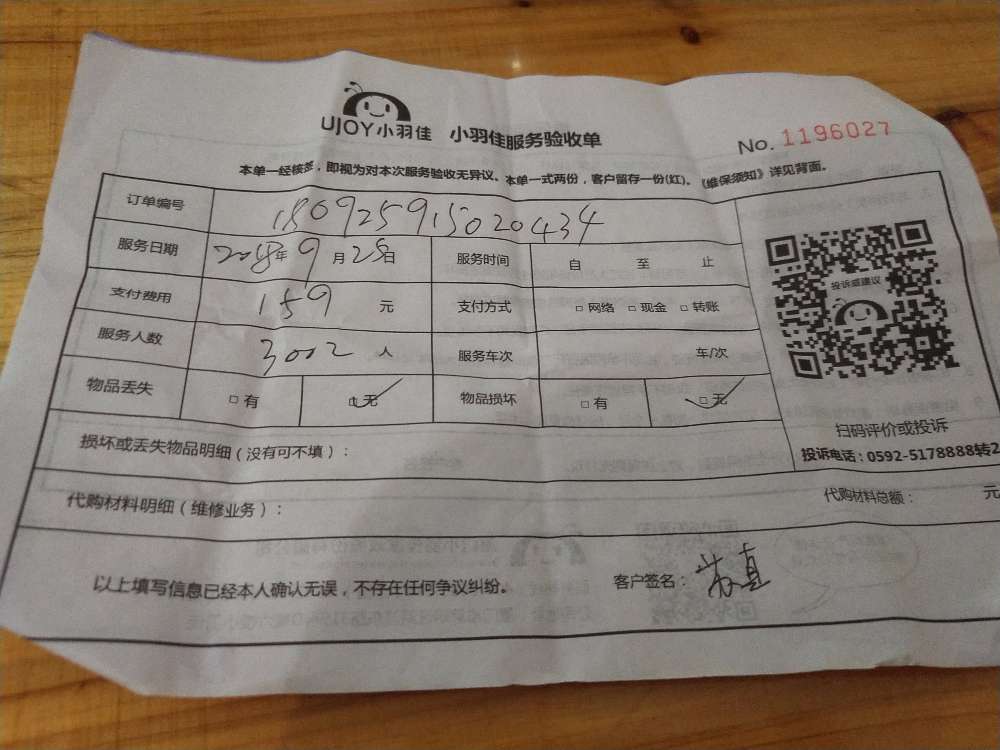 UJOY小羽佳 小羽佳服务验收单 No. 1196027
本单一经核签，即视为对本次服务验收无异议。本单一式两份，客户留存一份(红)。《维保须知》详见背面。
订单编号 180925915020434
服务日期 2018年9月25日 服务时间 自 至 止
支付费用 159 元 支付方式 □ 网络 □ 现金 □ 转账
服务人数 3002 人 服务车次 车/次
物品丢失 □ 有 □ 无 物品损坏 □ 有 □ 无
投诉或建议
扫码评价或投诉
投诉电话：0592-5178888转2
损坏或丢失物品明细（没有可不填）：
代购材料明细（维修业务）： 代购材料总额： 元
以上填写信息已经本人确认无误，不存在任何争议纠纷。 客户签名：